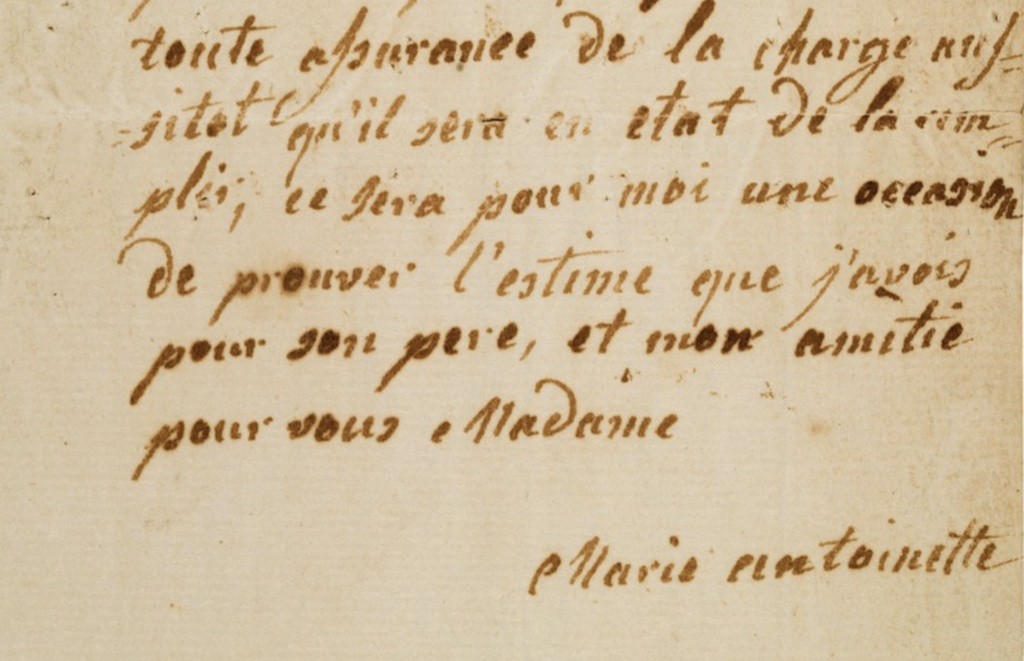 toute assurance de la charge aus-
-sitot qu'il sera en etat de la rem-
plir, ce sera pour moi une occasion
de prouver l'estime que j'avois
pour son pere, et mon amitie
pour vous Madame
Marie antoinette